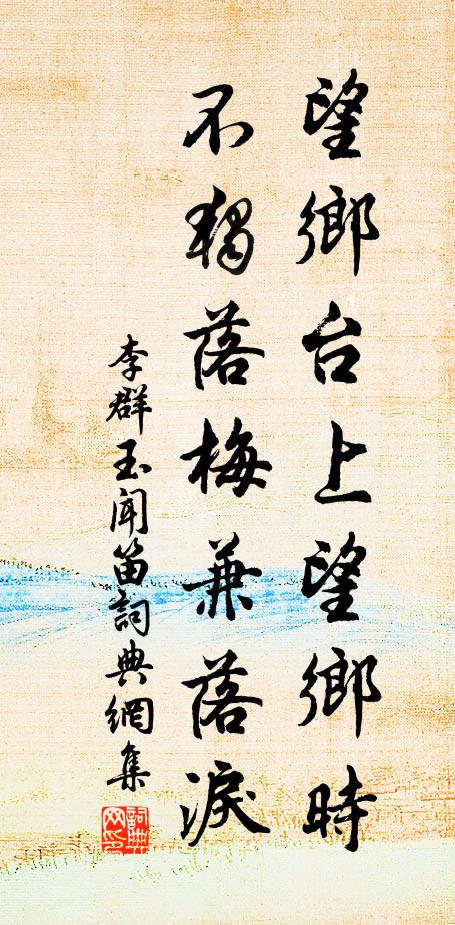 望鄉台上望鄉時
不獨落梅兼落淚
李群玉聞笛詞典網集
詞典
网印